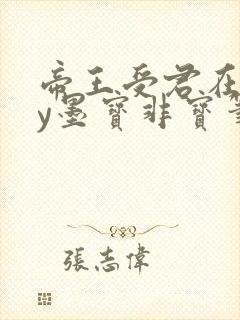 帝王受君在
y墨寶非寶
張志偉